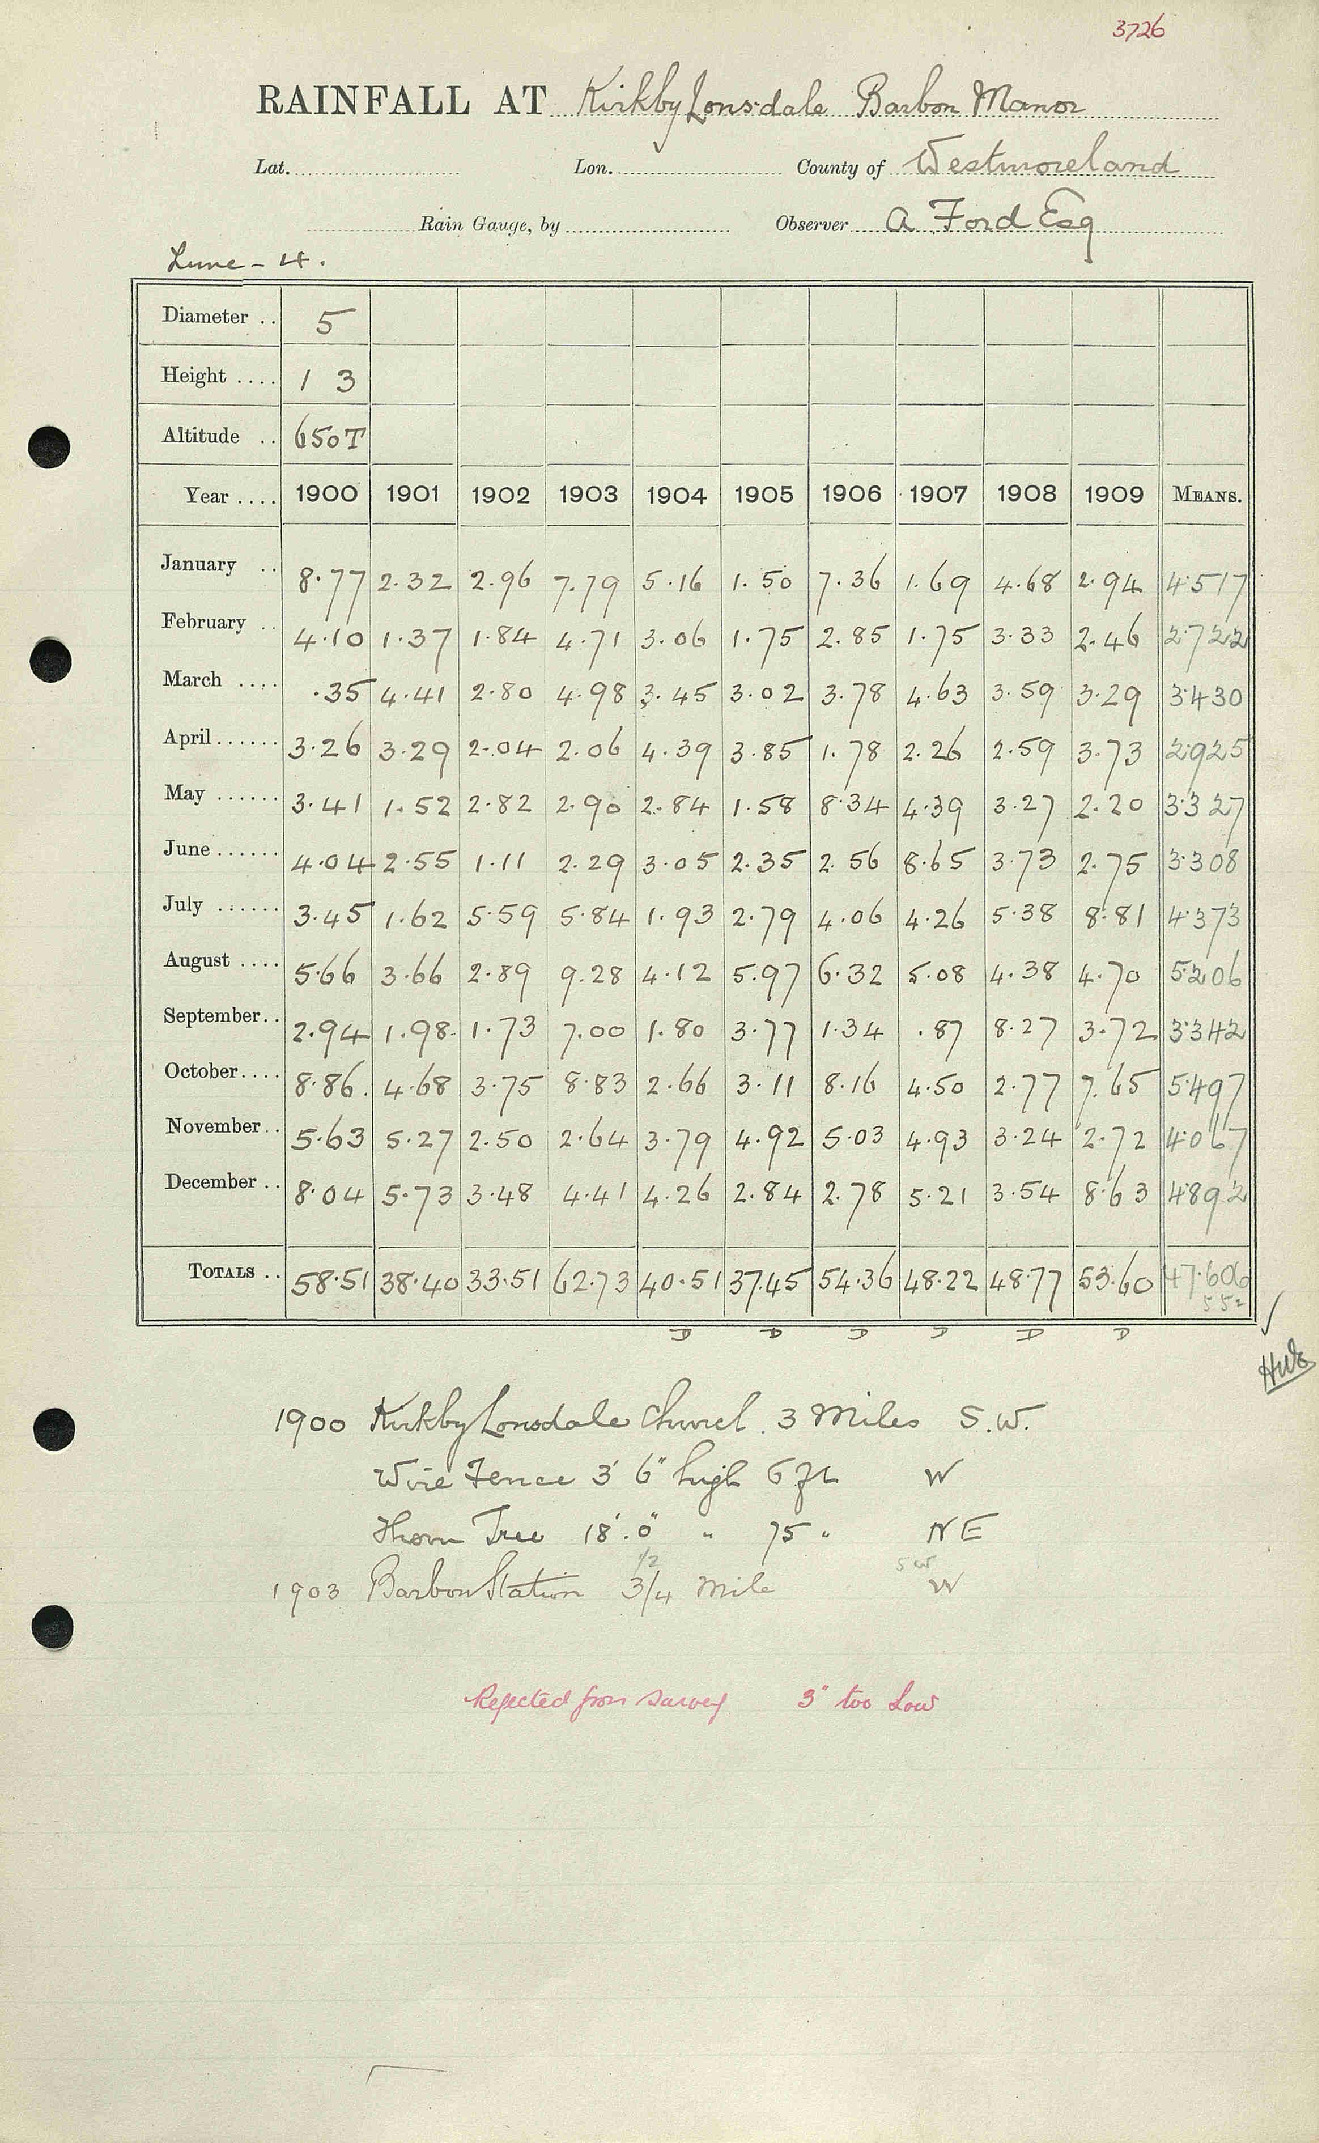 3726
RAINFALL AT Kirkby Lonsdale Barbon Manor
Lat. Lon. County of Westmoreland
Rain Gauge, by Observer A Ford Esq
Lune - 4.
Diameter .. 5
Height .... 1 3
Altitude .. 650T
Year .... 1900 1901 1902 1903 1904 1905 1906 1907 1908 1909 MEANS.
January .. 8.77 2.32 2.96 7.79 5.16 1.50 7.36 1.69 4.68 2.94 4.517
February .. 4.10 1.37 1.84 4.71 3.06 1.75 2.85 1.75 3.33 2.46 2.722
March .... .35 4.41 2.80 4.98 3.45 3.02 3.78 4.63 3.59 3.29 3.430
April...... 3.26 3.29 2.04 2.06 4.39 3.85 1.78 2.26 2.59 3.73 2.925
May ...... 3.41 1.52 2.82 2.90 2.84 1.58 8.34 4.39 3.27 2.20 3.327
June...... 4.04 2.55 1.11 2.29 3.05 2.35 2.56 8.65 3.73 2.75 3.308
July ...... 3.45 1.62 5.59 5.84 1.93 2.79 4.06 4.26 5.38 8.81 4.373
August .... 5.66 3.66 2.89 9.28 4.12 5.97 6.32 5.08 4.38 4.70 5.206
September.. 2.94 1.98 1.73 7.00 1.80 3.77 1.34 .87 8.27 3.72 3.342
October.... 8.86 4.68 3.75 8.83 2.66 3.11 8.16 4.50 2.77 7.65 5.497
November.. 5.63 5.27 2.50 2.64 3.79 4.92 5.03 4.93 3.24 2.72 4.067
December .. 8.04 5.73 3.48 4.41 4.26 2.84 2.78 5.21 3.54 8.63 4.892
TOTALS .. 58.51 38.40 33.51 62.73 40.51 37.45 54.36 48.22 48.77 53.60 47.606
552
D D D D D D
1900 Kirkby Lonsdale Church 3 Miles S.W.
Wire Fence 3' 6" high 6 ft W
Thorn Tree 18'.0" " 75 " NE
1/2 SW
1903 Barbon Station 3/4 Mile W
Rejected from Survey 3" too Low